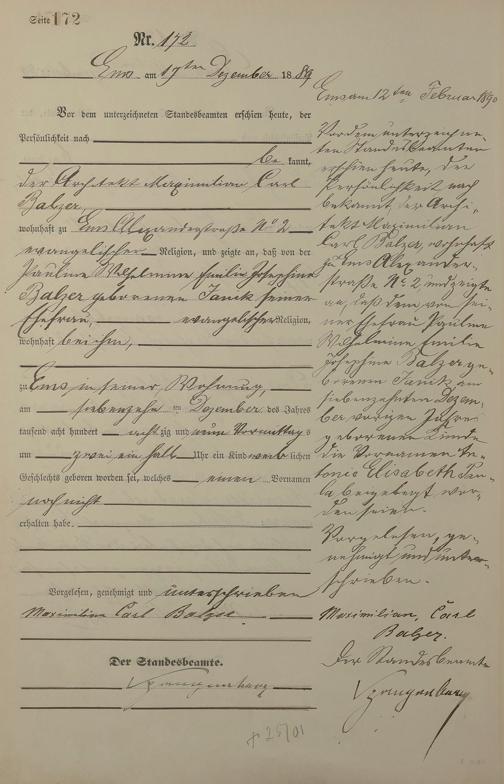 Seite 172
Nr. 172
Ems am 17ten Dezember 1889
Vor dem unterzeichneten Standesbeamten erschien heute, der
Persönlichkeit nach
be kannt,
der Architekt Maximilian Carl
Balzer,
wohnhaft zu Ems Alexanderstraße No 2
evangelischer Religion, und zeigte an, daß von der
Pauline Wilhelmine Emilie Josephine
Balzer geborenen Janick seiner
Ehefrau, evangelischer Religion,
wohnhaft bei ihm,
zu Ems, in seiner Wohnung,
am siebenzehn ten Dezember des Jahres
tausend acht hundert acht zig und neun Vormittags
um zwei ein halb Uhr ein Kind weib lichen
Geschlechts geboren worden sei, welches einen Vornamen
noch nicht
erhalten habe.
Vorgelesen, genehmigt und unterschrieben
Maximilian Carl Balzer
Der Standesbeamte.
Spangenberg
Ems am 12ten Februar 1890
Vor dem unterzeichne-
ten Standesbeamten
erschien heute, der
Persönlichkeit nach
bekannt, der Archi-
tekt Maximilian
Carl Balzer, wohnhaft
zu Ems Alexander-
straße No 2 und zeigte
an, daß dem von sei-
ner Ehefrau Pauline
Wilhelmine Emilie
Josephine Balzer ge-
borenen Janick am
siebenzehnten Dezem-
ber vorigen Jahres
geborenen Kinde
die Vornamen An-
tonie Elisabeth Pau-
la beigelegt wor-
den seien.
Vorgelesen, ge-
nehmigt und unter-
schrieben.
Maximilian, Carl
Balzer.
Der Standesbeamte
Spangenberg
+ 25/01